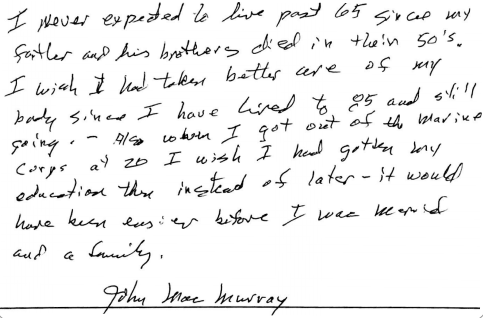 I never expected to live past 65 since my
father and his brothers died in their 50's.
I wish I had taken better care of my
body since I have lived to 85 and still
going. - Also when I got out of the Marine
Corps at 20 I wish I had gotten my
education then instead of later - it would
have been easier before I was married
and a family.
John Mac Murray